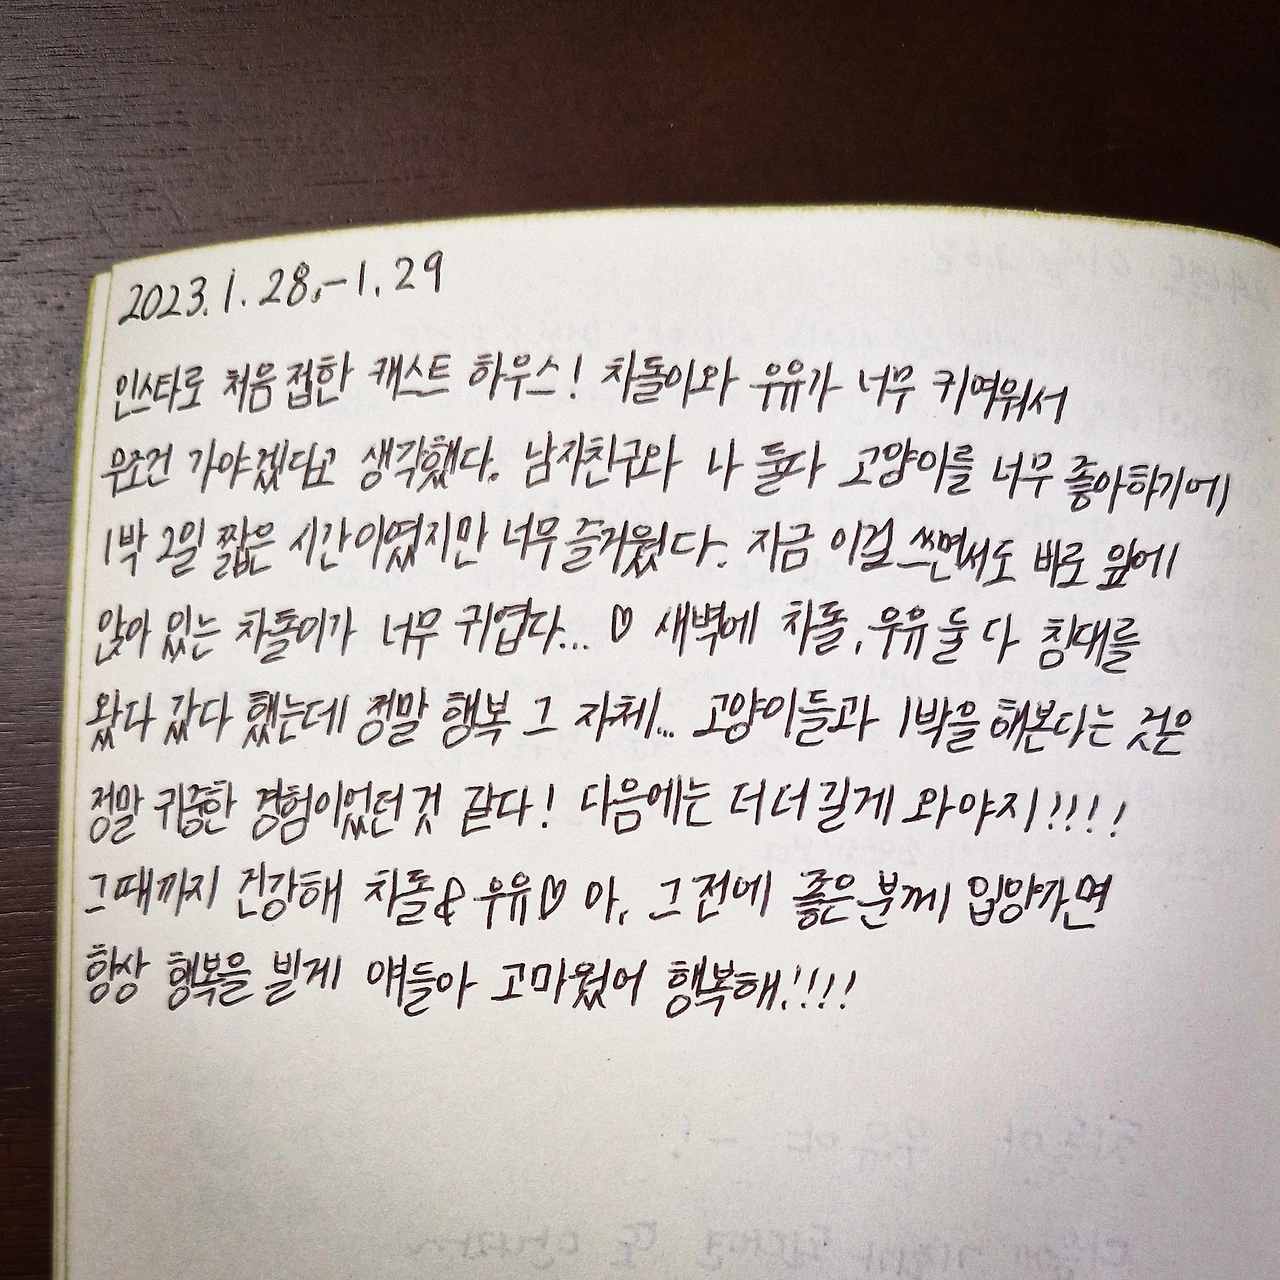 2023.1.28.-1.29
인스타로 처음 접한 캐스트 하우스! 차돌이와 우유가 너무 귀여워서
무조건 가야겠다고 생각했다. 남자친구와 나 둘다 고양이를 너무 좋아하기에
1박 2일 짧은 시간이였지만 너무 즐거웠다. 지금 이걸 쓰면서도 바로 앞에
앉아 있는 차돌이가 너무 귀엽다... ♡ 새벽에 차돌, 우유 둘 다 침대를
왔다 갔다 했는데 정말 행복 그 자체... 고양이들과 1박을 해본다는 것은
정말 귀중한 경험이었던 것 같다! 다음에는 더 더 길게 와야지!!!!
그때까지 건강해 차돌&우유♡ 아, 그 전에 좋은분께 입양가면
항상 행복을 빌게 얘들아 고마웠어 행복해!!!!